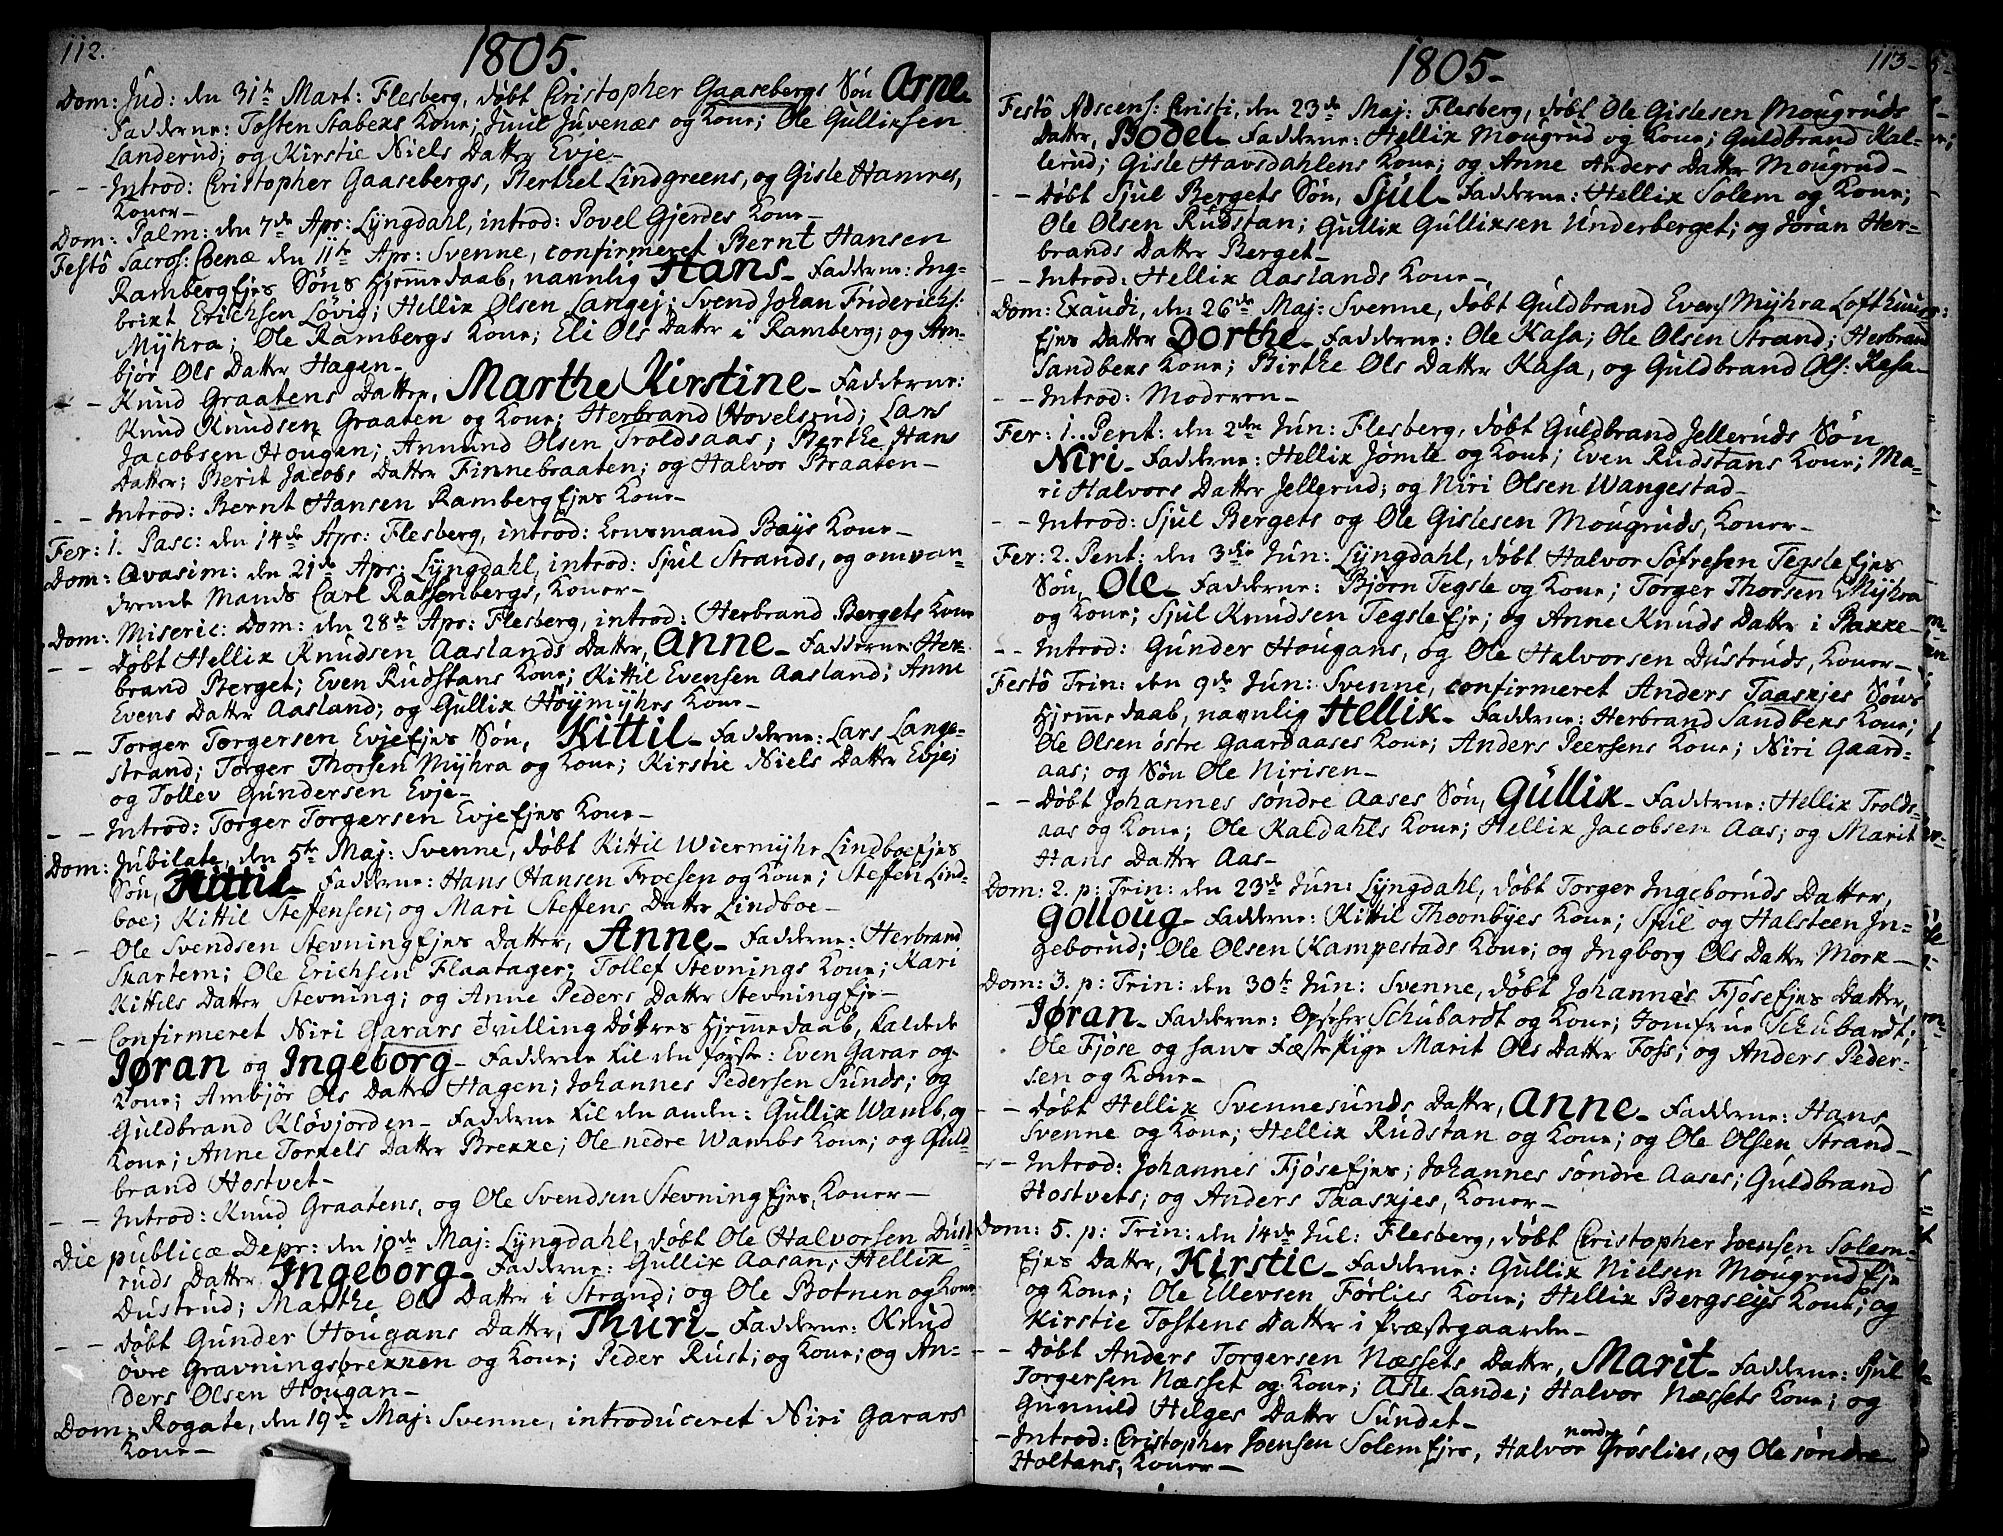 112.
1805.
Dom: Jud: den 31te Mart: Flesberg, døbt Christopher Gaasebergs Søn Arne
Fadderne: Tosten Stabeks Kone; Juul Juvenæs og Kone; Ole Gulliksen
Landerud; og Kirstie Niels Datter Evje_
- - Introd: Christopher Gaasebergs, Berthel Lindgreens, og Gisle Hamres,
Koner_
Dom: Palm: den 7de Apr: Lÿngdahl, introd: Povel Gjerdes Kone_
Festô Sacros: Coenæ den 11te Apr: Svenne, confirmeret Bernt Hansen
Ramberg Ejes Søns Hjemmedaab, navnlig Hans_ Fadderne: Ing-
brikt Erichsen Løvig; Hellik Olsen Langej; Svend Johan Friderichs:
Mÿhra; Ole Rambergs Kone; Eli Ols Datter i Ramberg; og Am-
bjør Ols Datter Hagen_
- - Knud Graatens Datter, Marthe Kirstine_ Fadderne:
Knud Knudsen Graaten og Kone; Herbrand Hovelsrud; Lars
Jacobsen Hougan; Anmund Olsen Troldsaas; Berthe Hans
Datter; Berit Jacobs Datter Finnebraaten; og Halvor Braaten_
- - Introd: Bernt Hansen Ramberg Ejes Kone_
Fer: 1. Pasc: den 14de Apr: Flesberg, introd: Lensmand Baÿs Kone_
Dom: Qvasim: den 21de Apr: Lÿngdahl, introd: Sjul Strands, og omvan-
drende Mands Carl Rassenbergs, Koner_
Dom: Miseric: Dom: den 28de Apr: Flesberg, introd: Herbrand Bergets Kone
- - Døbt Hellik Knudsen Aaslands Datter, Anne_ Fadderne: Her-
brand Berget; Even Rudstans Kone; Kittil Evensen Aasland; Anne
Evens Datter Aasland; og Gullik Høÿmÿhrs Kone_
- - Torger Torgersen Evje Ejes Søn, Kittil_ Fadderne: Lars Lange-
strand; Torger Thorsen Mÿhra og Kone; Kirstie Niels Datter Evje;
og Tollev Gundersen Evje_
- - Introd: Torger Torgersen Evje Ejes Kone_
Dom: Jubilate, den 5te Maj: Svenne, døbt Kittil Wiermÿhr Lindboe Ejes
Søn, Kittil_ Fadderne: Hans Hansen Froesen og Kone; Steffen Lind-
boe; Kittil Steffensen; og Mari Steffens Datter Lindboe_
- - Ole Svendsen Stevning Ejes Datter, Anne_ Fadderne: Herbrand
Skartem; Ole Erichsen Flaatager; Tollef Stevnings Kone; Kari
Kittils Datter Stevning; og Anne Peders Datter Stevning Eje_
- - Confirmeret Niri Garars Tvilling Døttres Hjemmedaab, kaldede
Jøran og Ingeborg_ Fadderne til den første: Even Garar og
Kone; Ambjør Ols Datter Hagen; Johannes Pedersen Sunds; og
Guldbrand Kløvjorden_ Fadderne til den anden: Gullik Wamb, og
Kone; Anne Torkels Datter Brekke; Ole nedre Wambs Kone; og Guld-
brand Hostvet_
- - Introd: Knud Graatens, og Ole Svendsen Stevning Ejes, Koner_
Die publicæ Depr: den 10de Maj: Lÿngdahl, døbt Ole Halvorsen Dust-
ruds Datter Ingeborg_ Fadderne: Gullik Aasan; Hellik
Dustrud; Marthe Ols Datter i Strand; og Ole Botnen og Kone
- - Døbt Gunder Hougans Datter, Thuri_ Fadderne: Knud
øvre Gravningsbrekken og Kone; Peder Rust; og Kone; og An-
ders Olsen Hougan_
Dom: Rogate, den 19de Maj: Svenne, introduceret Niri Garars
Kone_
1805_
113_
Festô Adscens: Christi, den 23de Maj: Flesberg, døbt Ole Gislesen Mougruds
Datter, Bodel_ Fadderne: Hellik Mougrud og Kone; Guldbrand Kal-
lerud; Gisle Havsdahlens Kone; og Anne Anders Datter Mougrud_
- - Døbt Sjul Bergets Søn, Sjul_ Fadderne: Hellik Solem og Kone;
Ole Olsen Rudstan; Gullik Gulliksen Underberget; og Jøran Her-
brands Datter Berget_
- - Introd: Hellik Aaslands Kone_
Dom: Exaudi, den 26de Maj: Svenne, døbt Guldbrand Evens Mÿhra Lofthuus-
Ejes Datter Dorthe_ Fadderne: Ole Kasa; Ole Olsen Strand; Herbrand
Sandbeks Kone; Birthe Ols Datter Kasa, og Guldbrand Ols: Kasa_
- - Introd: Moderen_
Fer: 1. Pent: den 2den Jun: Flesberg, døbt Guldbrand Jelleruds Søn
Niri_ Fadderne: Hellik Jømle og Kone; Even Rudstans Kone; Ma-
ri Halvors Datter Jellerud; og Niri Olsen Wangestad_
- - Introd: Sjul Bergets og Ole Gislesen Mougruds, Koner_
Fer: 2. Pent: den 3die Jun: Lÿngdahl, døbt Halvor Søfresen Tegsle Ejes
Søn, Ole_ Fadderne: Bjørn Tegsle og Kone; Torger Thorsen Mÿhra
og Kone; Sjul Knudsen Tegsle Eje; og Anne Knuds Datter i Bakke_
- - Introd: Gunder Hougans, og Ole Halvorsen Dustruds, Koner_
Festô Trin: den 9de Jun: Svenne, confirmeret Anders Taaskjes Søns
Hjemmedaab, navnlig Hellik_ Fadderne: Herbrand Sandbeks Kone;
Ole Olsen østre Gaardaases Kone; Anders Peersens Kone; Niri Gaard-
aas; og Søn Ole Nirisen_
- - Døbt Johannes søndre Aases Søn, Gullik_ Fadderne: Hellik Trolds-
aas og Kone; Ole Kaldahls Kone; Hellik Jacobsen Aas; og Marit
Hans Datter Aas_
Dom: 2. p: Trin: den 23de Jun: Lÿngdahl, døbt Torger Ingeboruds Datter,
Golloug_ Fadderne: Kittil Thoonbÿes Kone; Sjul og Halsteen In-
geborud; Ole Olsen Kampestads Kone; og Ingborg Ols Datter Mork_
Dom: 3. p: Trin: den 30te Jun: Svenne, døbt Johannes Fjøse Ejes Datter,
Jøran_ Fadderne: Schubardt og Kone; Jomfrue Schubardt;
Ole Fjøse og hans Fæste Pige Marit Ols Datter Foss; og Anders Peder-
sen og Kone_
- - Døbt Hellik Svennesunds Datter, Anne_ Fadderne: Hans
Svenne og Kone; Hellik Rudstan og Kone; og Ole Olsen Strand_
- - Introd: Johannes Fjøse Ejes; Johannes søndre Aases; Guldbrand
Hostvets; og Anders Taaskjes, Koner_
Dom: 5. p: Trin: den 14de Jul: Flesberg, døbt Christopher Joensen Solem-
Ejes Datter, Kirstie_ Fadderne: Gullik Nielsen Mougrud Eje
og Kone; Ole Ellevsen Førlies Kone; Hellik Bergseÿs Kone; og
Kirstie Tostens Datter i Præstegaarden_
- - Døbt Anders Torgersen Næssets Datter, Marit_ Fadderne: Sjul
Torgersen Næsset og Kone; Asle Lande; Halvor Næssets Kone; og
Gunnild Helges Datter Sundet_
- Introd: Christopher Joensen Solem Ejes, Halvor nordre Grøslies, og Ole søndre
Holtans, Koner_